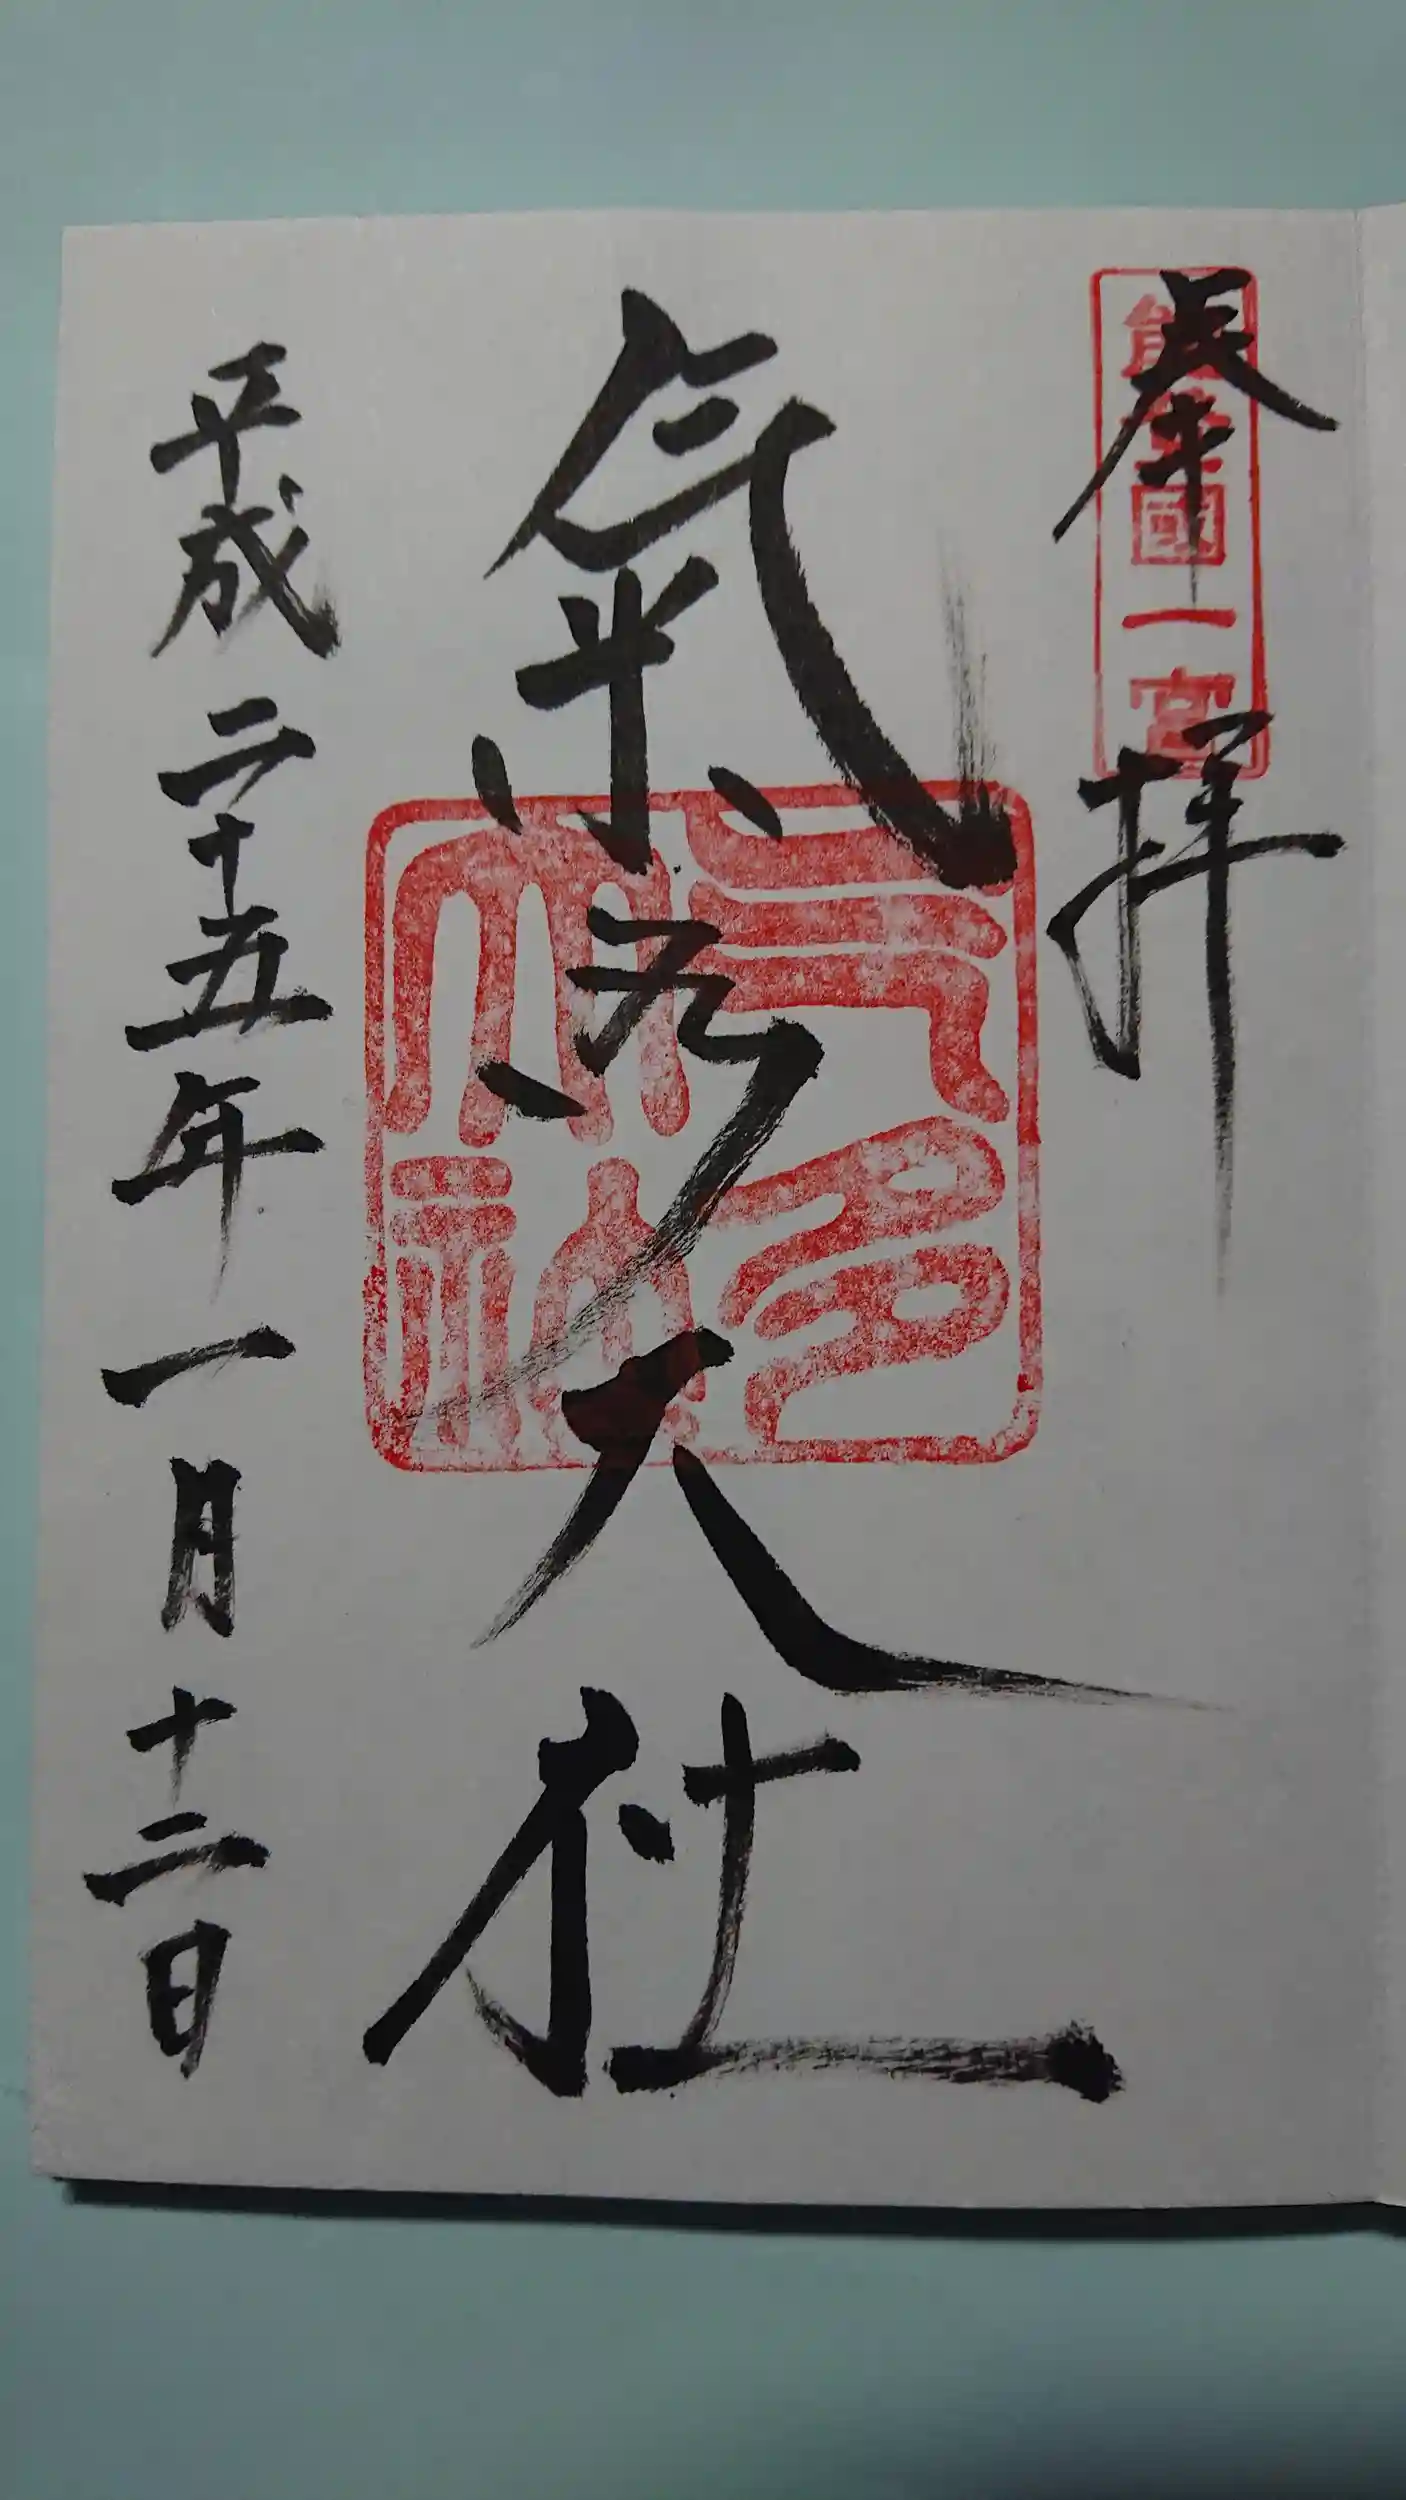 奉拝
能登國一宮
氣多大社
气多大神
平成二十五年一月十二日